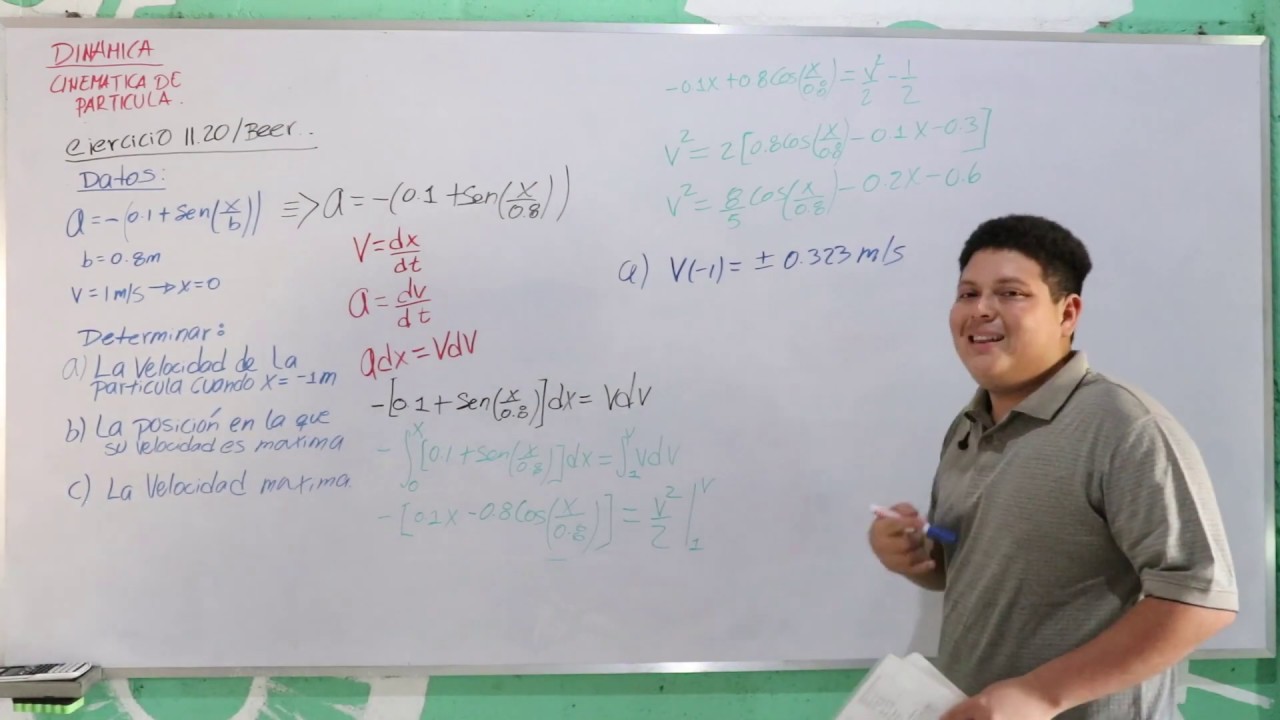 DINÁMICA
CINEMATICA DE
PARTICULA.
ejercicio 11.20/Beer..
Datos:
a=-(0.1+sen(x/b)) => a=-(0.1+sen(x/0.8))
b=0.8m
V=1m/s→x=0
Determinar:
a) La Velocidad de La
particula cuando x=-1m
b) La posición en la que
su velocidad es maxima
c) La Velocidad maxima.
V=dx/dt
a=dv/dt
adx=VdV
-[0.1+sen(x/0.8)]dx=VdV
-∫₀ˣ[0.1+sen(x/0.8)]dx=∫₁ᵛVdV
-[0.1x-0.8Cos(x/0.8)]=V²/2|₁ⱽ
-0.1x+0.8Cos(x/0.8)=V²/2-1/2
V²=2[0.8Cos(x/0.8)-0.1x-0.3]
V²=8/5Cos(x/0.8)-0.2x-0.6
a) V(-1)=±0.323m/s